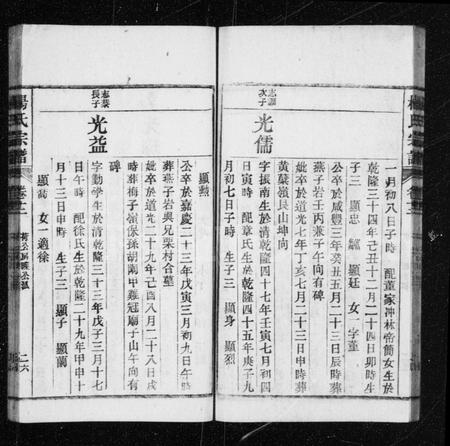 楊氏宗譜
卷十二
一月初八日子時　配董家沖林帝簡女生於
乾隆三十四年己丑十二月二十四日卯時生
子三　顯忠　顯廷　女一字董
公卒於咸豐三年癸丑五月二十三日辰時葬
燕子岩壬丙兼子午向有碑
妣卒於道光七年丁亥七月二十三日時葬
黃葉嶺艮山坤向
志謨次子　光儒
字振南生於清乾隆四十七年壬寅七月初四
日寅時　配章氏生於乾隆四十五年庚子九
月初七日子時　生子三　顯身　顯烈
顯勲
公卒於嘉慶二十三年戊寅三月初九日午時
葬燕子岩與兄栗村合墓
妣卒於道光二十九年己酉八月二十八日戌
時葬梅子嶺保孫胡兩甲雞冠廟子山午向有
碑
志棻長子　光益
字勤學生於清乾隆三十三年戊子三月十七
日午時　配徐氏生於乾隆二十九年甲申十
月十三日申時　生子三　顯子　顯蘭
顯　女一適徐
楊氏宗譜
卷十二
二六